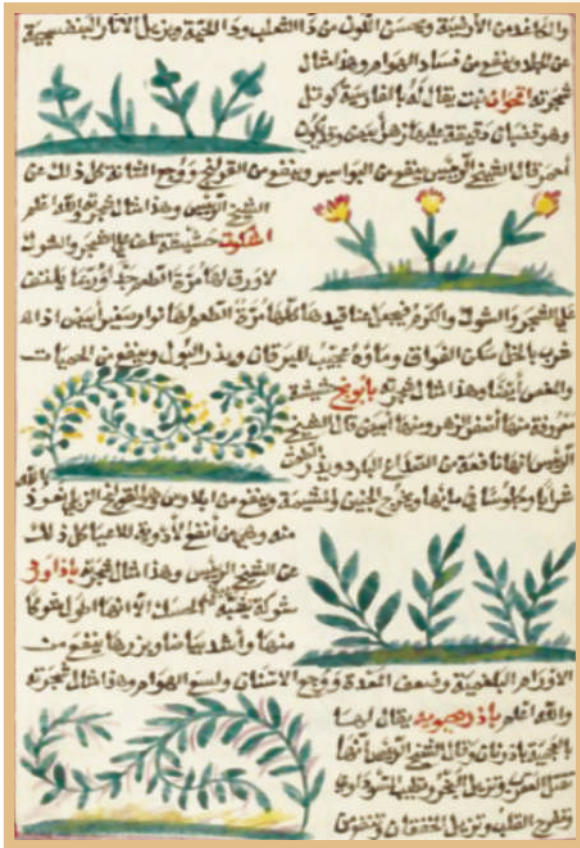 والكاغد من الأرضية ويحسن اللون من داء الثعلب وداء الحية ويزيل الآثار البنفسجية
عن الجلد وينفع من فساد الهوام وهذا مثال
شجرته اقحوان نبت يقال له بالفارسية كوتل
وهو قضبان دقيقة عليها زهر أبيض وقد يكون
أحمر قال الشيخ الرئيس ينفع من البواسير وينفع من القولنج ووجع المثانة كل ذلك عن
الشيخ الرئيس وهذا مثال شجرته والله اعلم
اشكوت حشيشة تلتف على الشجر والشوك
لا ورق لها مرة الطعم جدا وربما يلتف
على الشجر والشوك والكرم فيجعل عناقيدها كلها مرة الطعم لها نوار صغير أبيض اذا
شرب بالخل سكن الفواق وماؤه عجيب لليرقان ويدر البول وينفع من الحميات
والمغص أيضا وهذا مثال شجرته بابونج حشيشة
معروفة منها أصفر الزهر ومنها أبيض قال الشيخ
الرئيس انها نافعة من الصداع البارد ويدر الطمث
شرابا وجلوسا في مائها ويخرج الجنين والمشيمة وينفع من ايلاوس
منه وهي من أنفع الأدوية للاعيا كل ذلك
عن الشيخ الرئيس وهذا مثال شجرته باذاورد
شوكة يشبه الحسك الا انها اطول
منها وأشد بياضا وبزرها ينفع من
الاورام البلغمية وضعف المعدة ووجع الاسنان ولسع الهوام وهذا مثال شجرته
والله اعلم باذرنجبويه يقال لها
بالعجمية باذرنان وقال الشيخ الرئيس أنها
وتزيل البخر
وتفرح القلب وتزيل الخفقان وتقوي